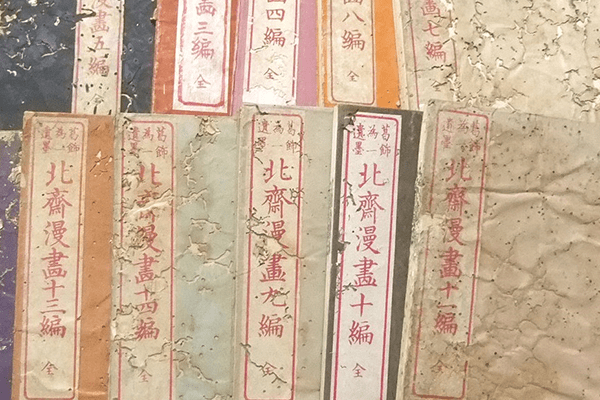 漫畫五編
畫三編
全
四編
全
畫八編
全
畫七編
葛飾
為一
遺墨
北齋漫畫十三編
全
葛飾
為一
遺墨
北齋漫畫十四編
全
葛飾
為一
遺墨
北齋漫畫九編
全
葛飾
為一
遺墨
北齋漫畫十編
全
葛飾
為一
遺墨
北齋漫畫十一編
全